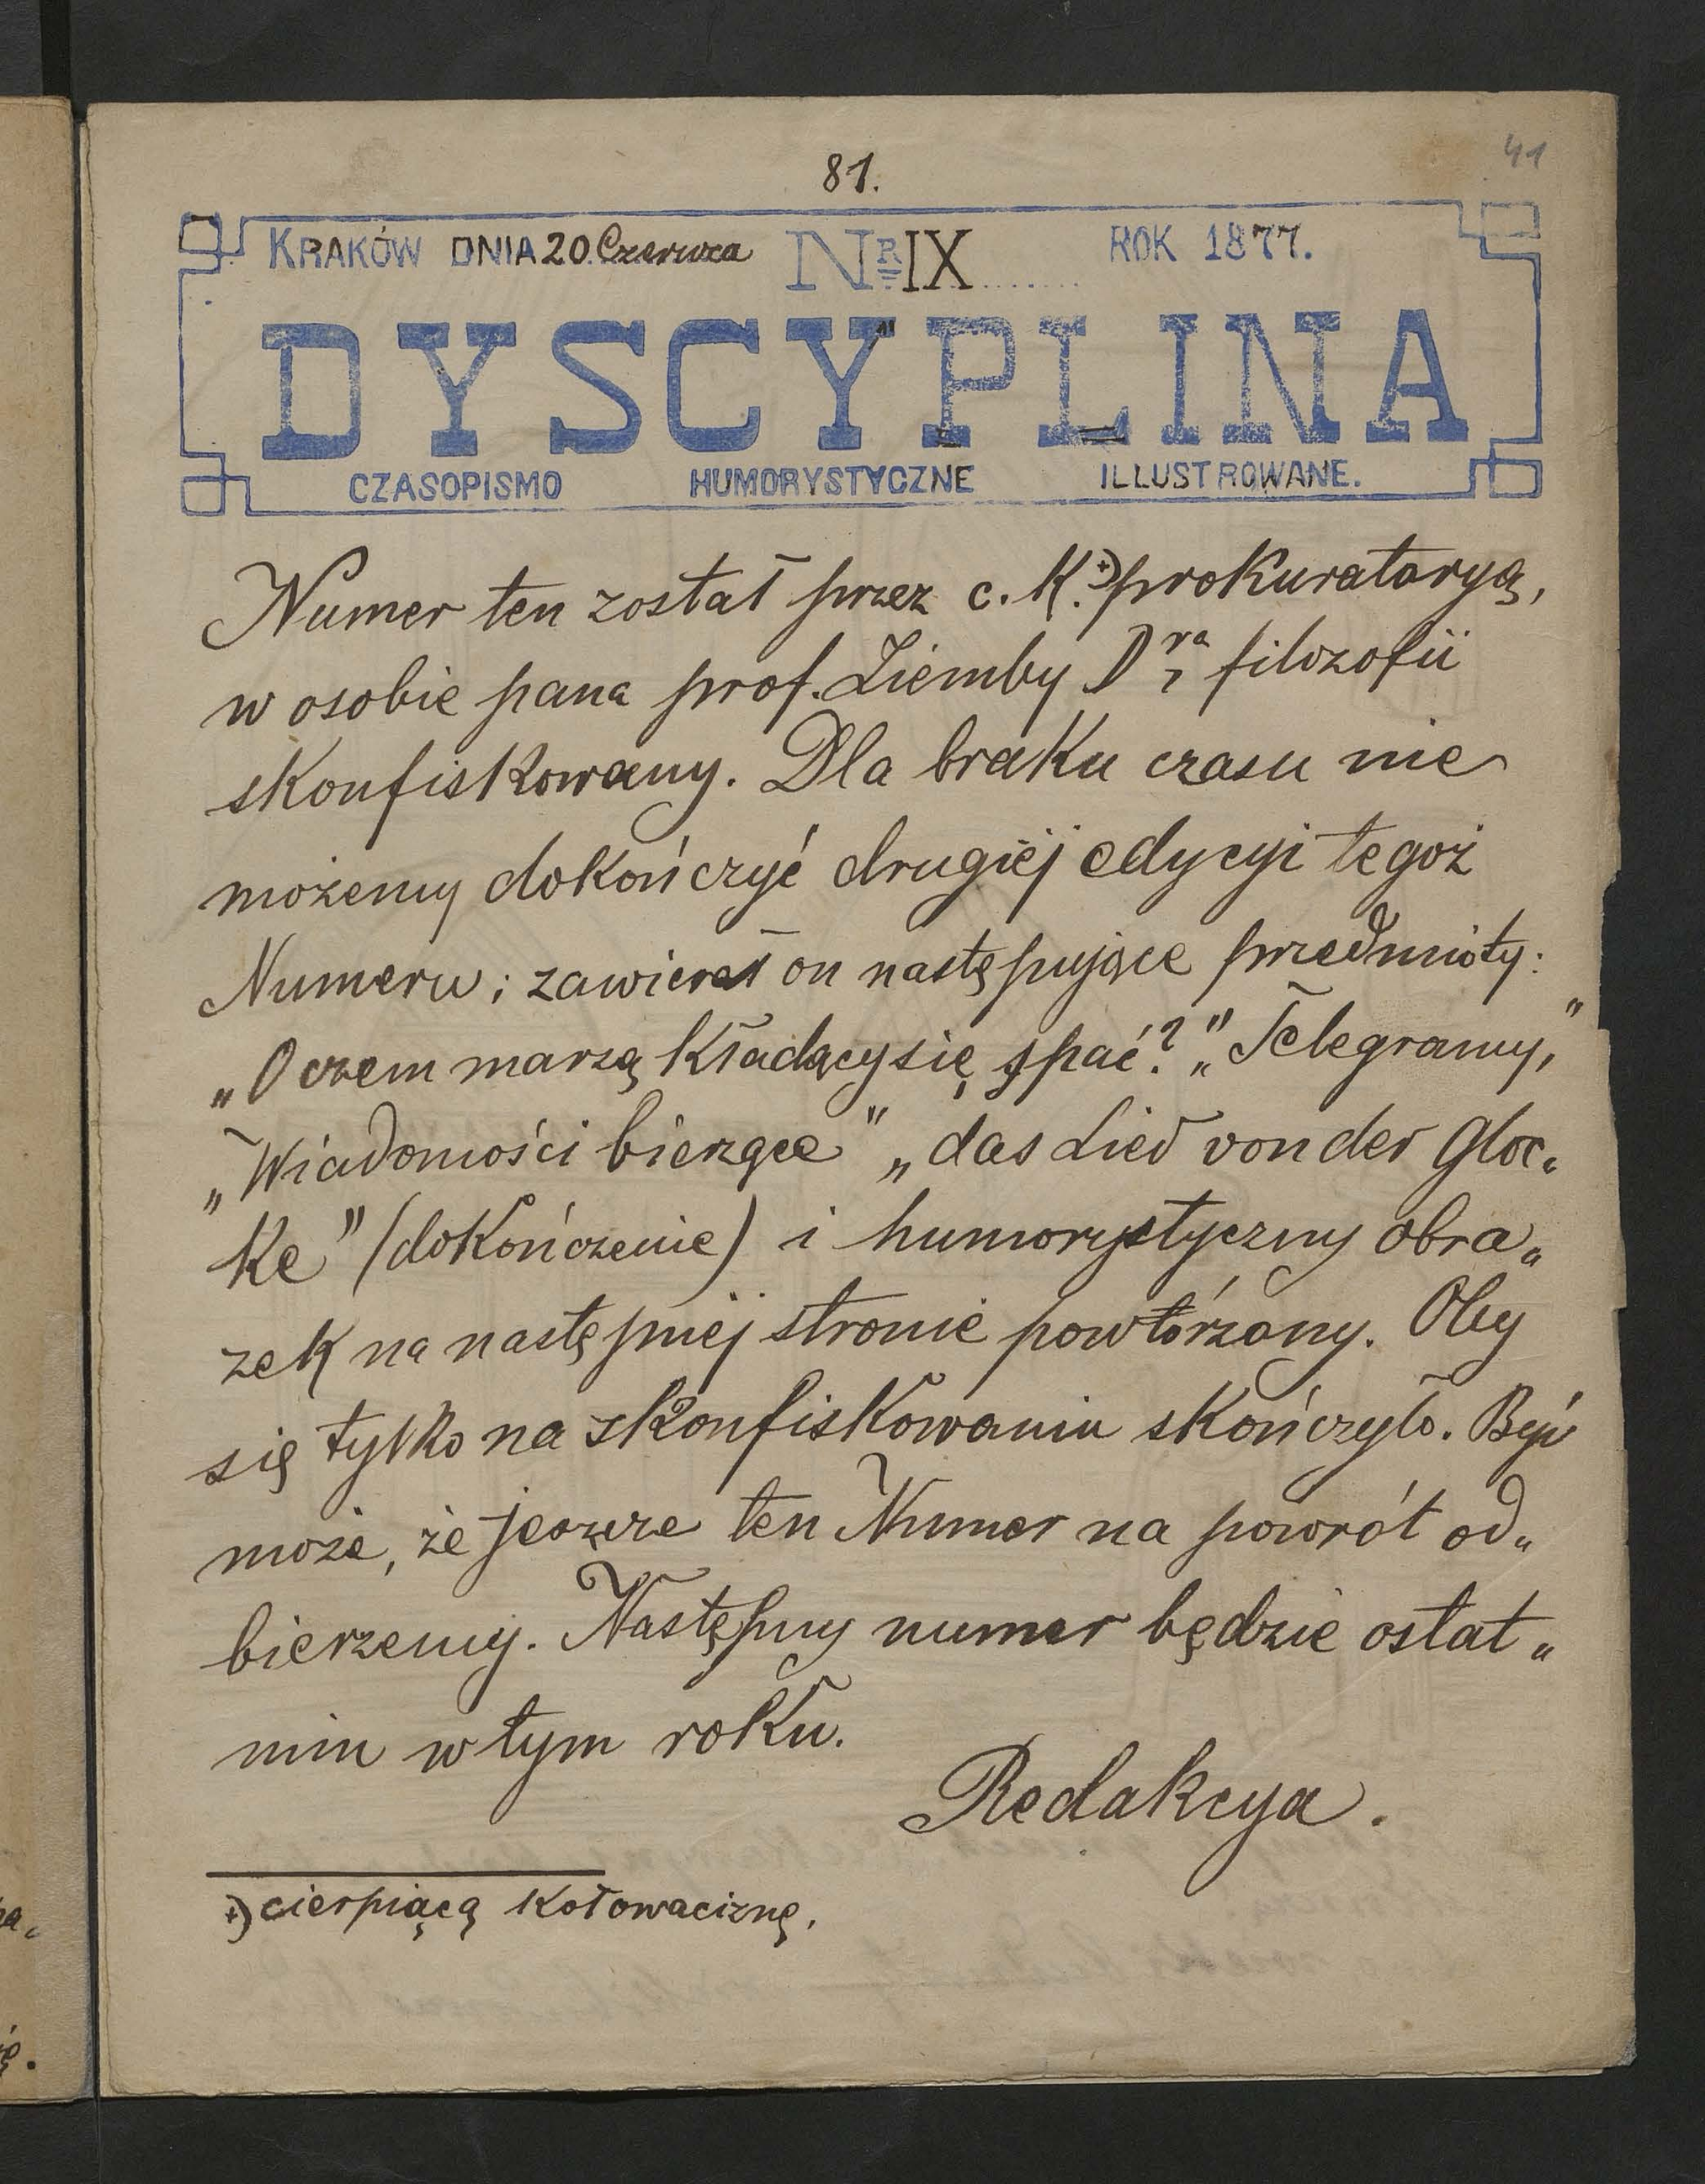 81.
41
KRAKÓW DNIA 20. Czerwca NR IX ROK 1877.
DYSCYPLINA
CZASOPISMO HUMORYSTYCZNE ILLUSTROWANE.
Numer ten został przez c. K.*) prokuratoryą,
w osobie pana prof. Ziemby Dra filozofii
skonfiskowany. Dla braku czasu nie
możemy dokończyć drugiéj edycyi tegoż
Numeru; zawierał on następujące przedmioty:
„O czem marzą kładący się spać?" „Telegramy,"
„Wiadomości bieżące" „das Lied von der Gloc„
ke" (dokończenie) i humorystyczny obra„
zek na następnéj stronie powtórzony. Oby
się tylko na skonfiskowaniu skończyło. Być
może, że jeszcze ten Numer na powrót od„
bierzemy. Następny numer będzie ostat„
nim w tym roku.
Redakcya.
*) cierpiącą kołowaciznę.